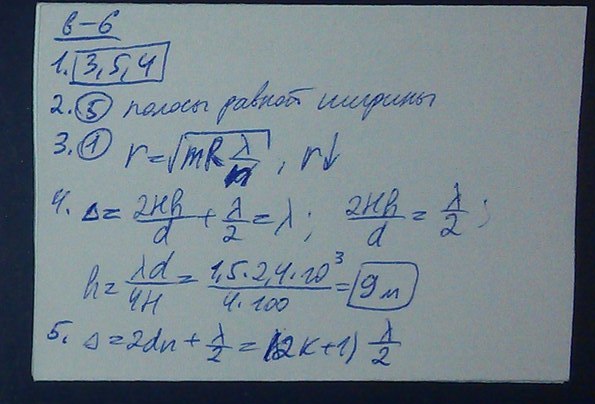 в-6
1. 3, 5, 4
2. 5 полосы равной ширины
3. 1 r = √(mR λ/n), r↓
4. Δ = 2Hh/d + λ/2 = λ; 2Hh/d = λ/2;
h = λd/4H = 1,5·2,4·10³/4·100 = 9м
5. Δ = 2dn + λ/2 = (2k+1) λ/2